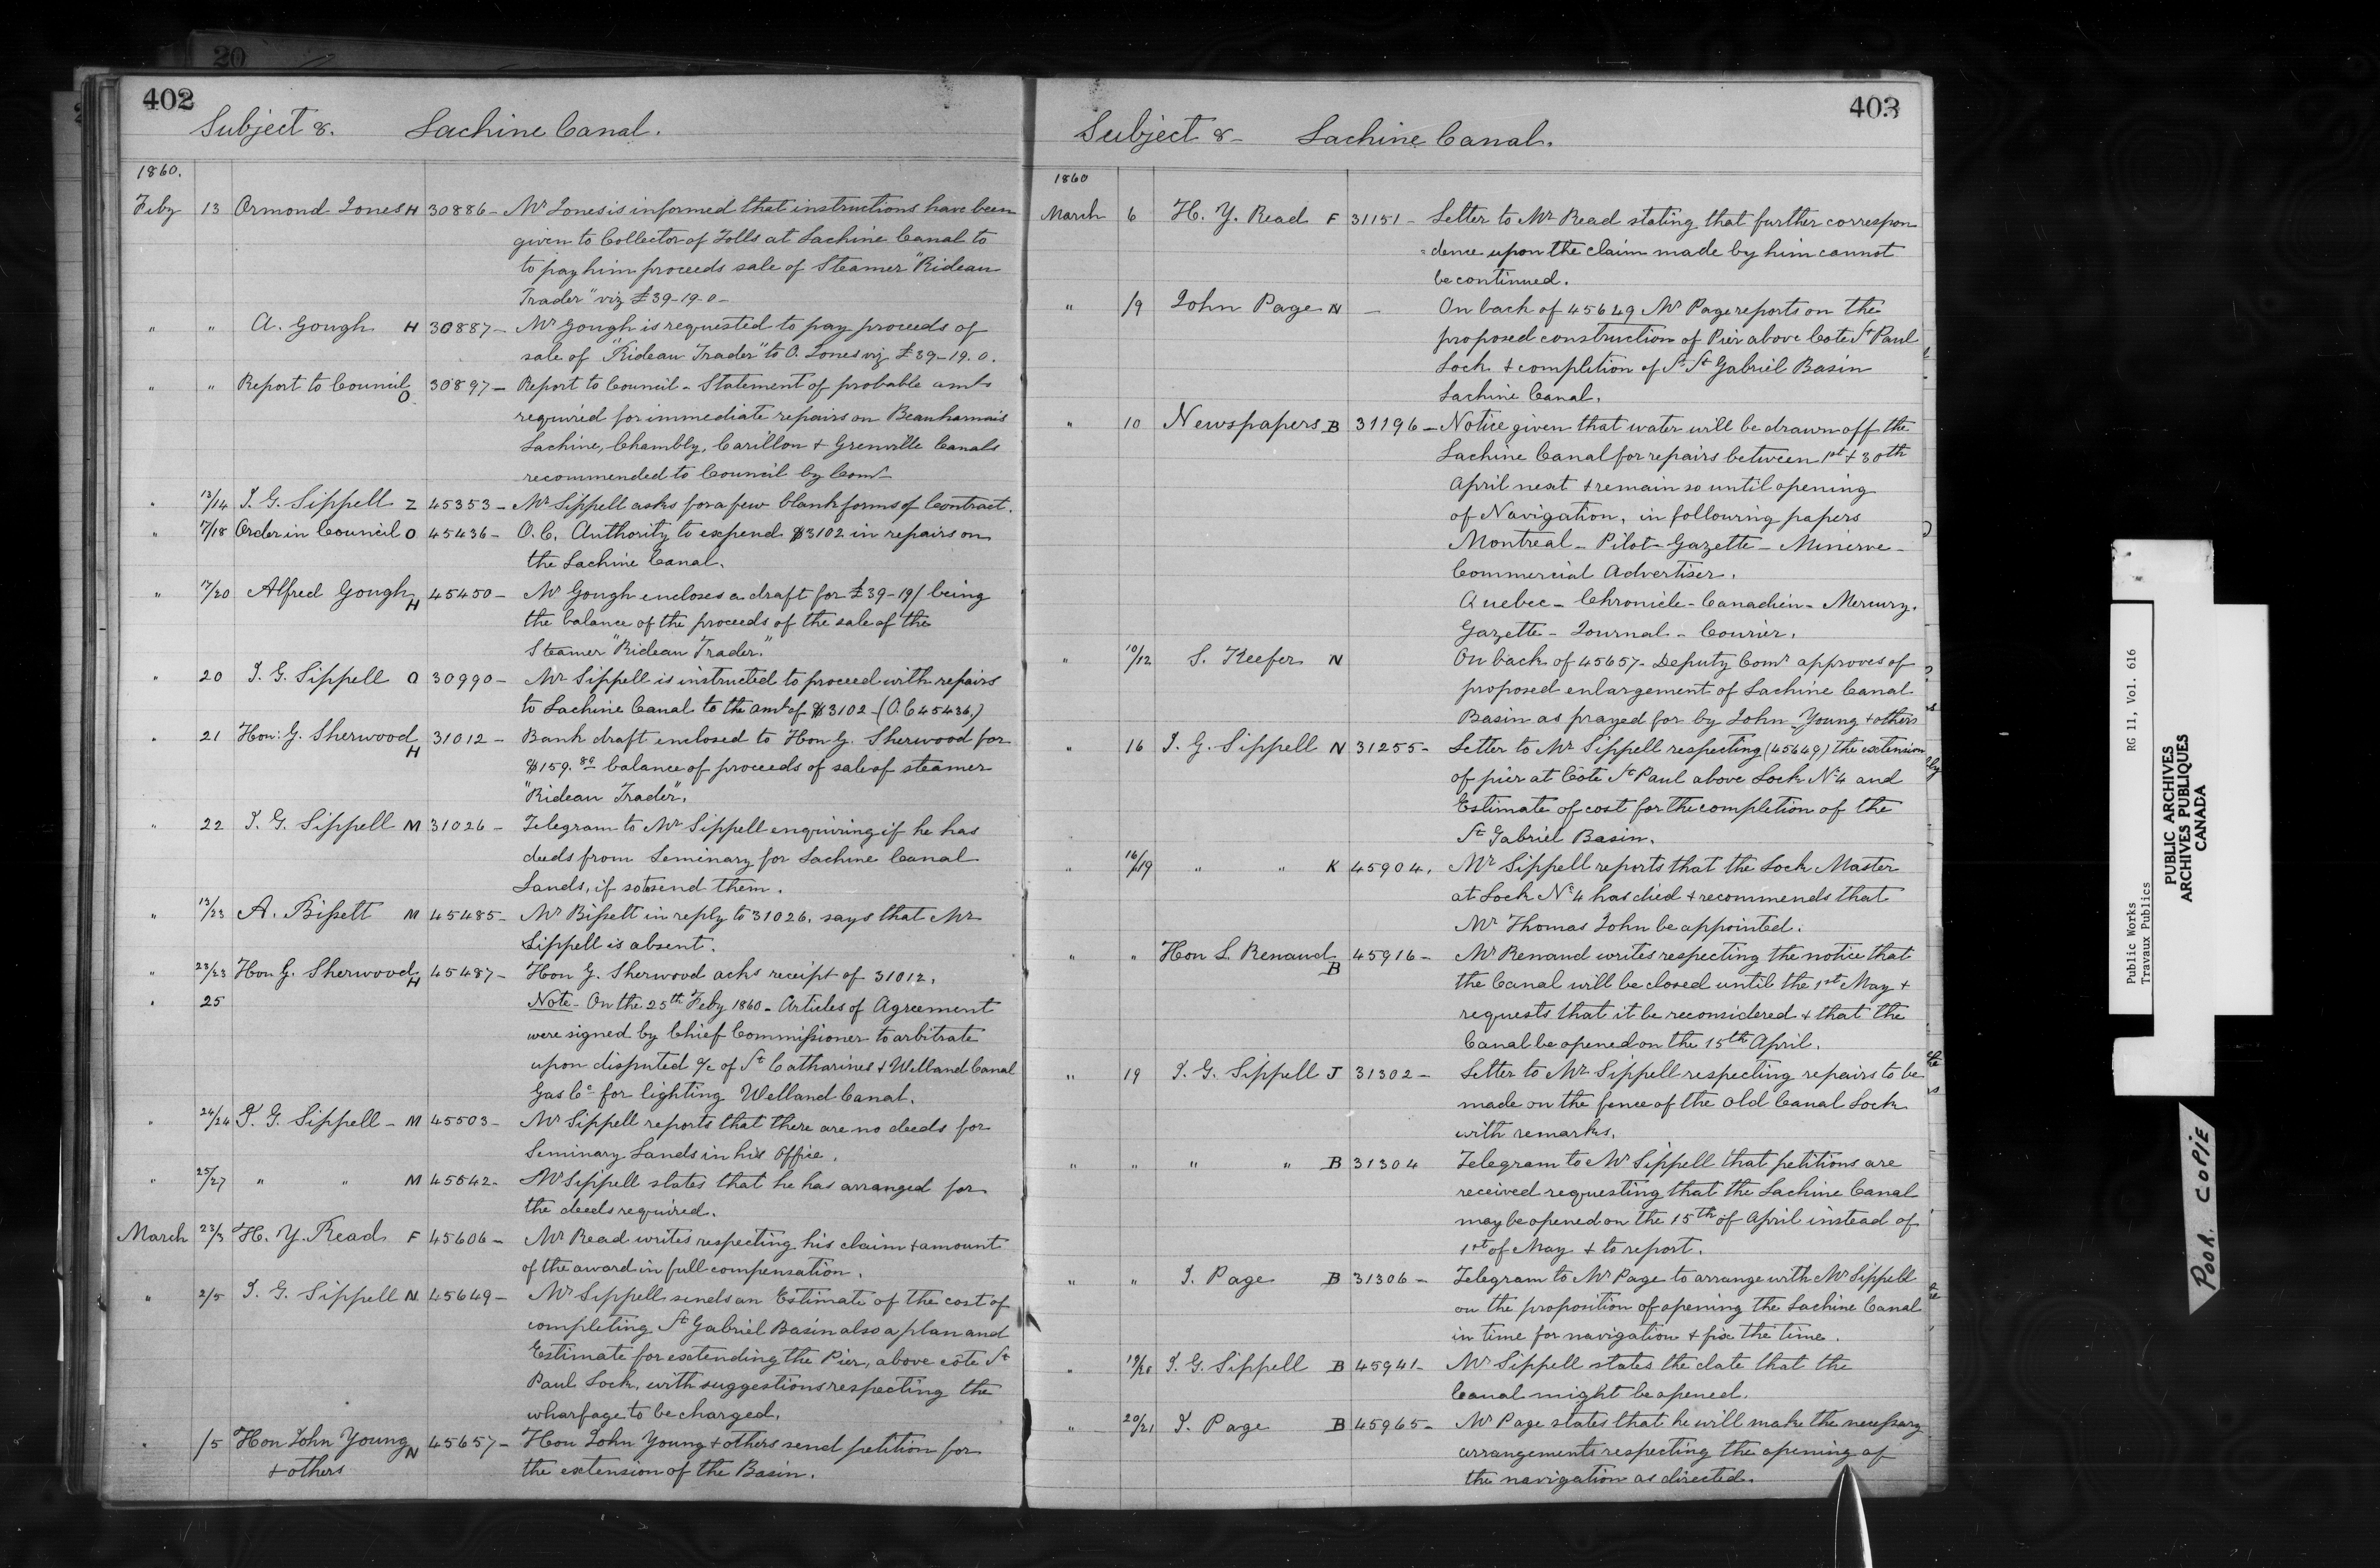 20
402
Subject 8. Lachine Canal.
1860.
Feby 13 Ormond Jones H 30886 - Mr Jones is informed that instructions have been
given to Collector of Tolls at Lachine Canal to
to pay him proceeds sale of Steamer "Rideau
Trader" viz £39-19-0-
" " A. Gough H 30887 - Mr Gough is requested to pay proceeds of
sale of "Rideau Trader" to O. Jones viz £39-19.0.
" " Report to Council O 30897 - Report to Council - Statement of probable amts
required for immediate repairs on Beauharnais
Lachine, Chambly, Carillon & Grenville Canals
recommended to Council by Comr
" 13/14 J. G. Sippell Z 45353 - Mr Sippell asks for a few blank forms of Contract.
" 17/18 Order in Council O 45436 - O.C. Authority to expend $3102 in repairs on
the Lachine Canal.
" 17/20 Alfred Gough H 45450 - Mr Gough encloses a draft for £39-19/ being
the balance of the proceeds of the sale of the
Steamer "Rideau Trader."
" 20 J. G. Sippell O 30990 - Mr Sippell is instructed to proceed with repairs
to Lachine Canal to the amt of $3102 - (O.C 45436,)
" 21 Hon: G. Sherwood H 31012 - Bank draft enclosed to Hon G. Sherwood for
$159. 80 balance of proceeds of sale of steamer
"Rideau Trader".
" 22 J. G. Sippell M 31026 - Telegram to Mr Sippell enquiring if he has
deeds from Seminary for Lachine Canal
Lands, if so to send them.
" 13/23 A. Bissett M 45485 - Mr Bissett in reply to 31026. says that Mr
Sippell is absent.
" 23/23 Hon G. Sherwood H 45487 - Hon G. Sherwood acks receipt of 31012.
" 25 Note - On the 25th Feby 1860 - Articles of Agreement
were signed by Chief Commissioner to arbitrate
upon disputed a/c of St Catharines & Welland Canal
Gas Co for lighting Welland Canal.
" 24/24 J. G. Sippell - M 45503 - Mr Sippell reports that there are no deeds for
Seminary Lands in his Office.
" 25/27 " " M 45542 - Mr Sippell states that he has arranged for
the deeds required.
March 23/3 H. Y. Read F 45606 - Mr Read writes respecting his claim & amount
of the award in full compensation.
" 2/5 J. G. Sippell N 45649 - Mr Sippell sends an Estimate of the cost of
completing St Gabriel Basin also a plan and
Estimate for extending the Pier, above côte St
Paul Lock, with suggestions respecting the
wharfage to be charged.
" /5 Hon John Young N 45657 - Hon John Young & others send petition for
& others the extension of the Basin.
403
Subject 8 - Lachine Canal.
1860
March 6 H. Y. Read F 31151 - Letter to Mr Read stating that further correspon
=dence upon the claim made by him cannot
be continued.
" /9 John Page N - On back of 45649 Mr Page reports on the
proposed construction of Pier above Cote St Paul
Lock & completion of St St Gabriel Basin
Lachine Canal.
" 10 Newspapers B 31196 - Notice given that water will be drawn off the
Lachine Canal for repairs between 1st & 30th
April next & remain so until opening
of Navigation, in following papers
Montreal - Pilot - Gazette - Minerve -
Commercial Advertiser.
Quebec - Chronicle - Canadien - Mercury.
Gazette - Journal - Courier.
" 10/12 S. Keefer N On back of 45657 - Deputy Comr approves of
proposed enlargement of Lachine Canal
Basin as prayed for by John Young & others
" 16 J. G. Sippell N 31255 - Letter to Mr Sippell respecting (45649) the extension
of pier at Côte St Paul above Lock No 4 and
Estimate of cost for the completion of the
St Gabriel Basin.
" 16/19 " " K 45904. Mr Sippell reports that the Lock Master
at Lock No 4 has died & recommends that
Mr Thomas John be appointed.
" " Hon L. Renaud B 45916 - Mr Renaud writes respecting the notice that
the Canal will be closed until the 1st May &
requests that it be reconsidered & that the
Canal be opened on the 15th April.
" 19 J. G. Sippell J 31302 - Letter to Mr Sippell respecting repairs to be
made on the fence of the Old Canal Lock
with remarks.
" " " " B 31304 Telegram to Mr Sippell that petitions are
received requesting that the Lachine Canal
may be opened on the 15th of April instead of
1st of May & to report.
" " J. Page B 31306 - Telegram to Mr Page to arrange with Mr Sippell
on the proposition of opening the Lachine Canal
in time for navigation & fix the time.
" 19/20 J. G. Sippell B 45941 - Mr Sippell states the date that the
Canal might be opened.
" 20/21 J. Page B 45965 - Mr Page states that he will make the necessary
arrangements respecting the opening of
the navigation as directed.
Public Works RG 11, Vol. 616
Travaux Publics
PUBLIC ARCHIVES
ARCHIVES PUBLIQUES
CANADA
POOR COPIE